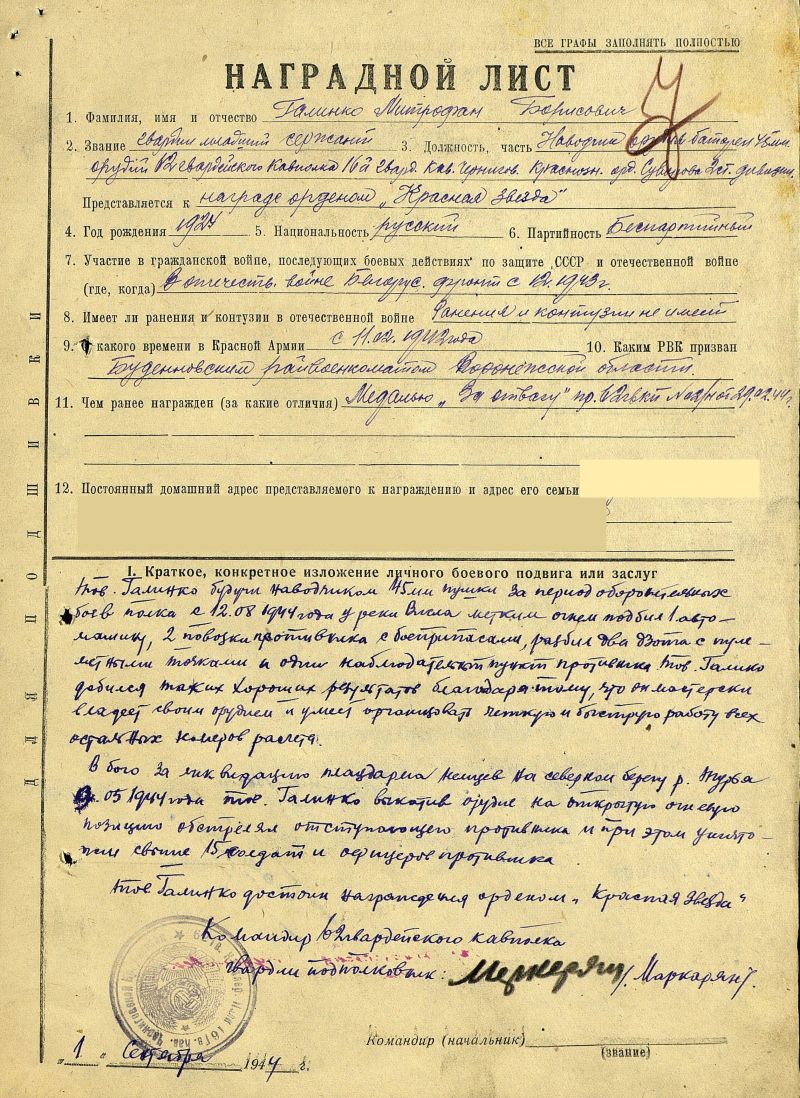 ВСЕ ГРАФЫ ЗАПОЛНЯТЬ ПОЛНОСТЬЮ
НАГРАДНОЙ ЛИСТ
1. Фамилия, имя и отчество Галинко Митрофан Борисович
2. Звание гвардии младший сержант 3. Должность, часть Наводчик орудия батареи 45 мм.
орудий 62 гвардейского Кавполка 16й гвард. Кав. Чернигов. Краснозн. орд. Суворова 2 ст. дивизии.
Представляется к награде орденом „Красная звезда"
4. Год рождения 1924 5. Национальность русский 6. Партийность Беспартийный
7. Участие в гражданской войне, последующих боевых действиях по защите СССР и отечественной войне
(где, когда) В отечеств. войне Белорус. фронт с 1943 г.
8. Имеет ли ранения и контузии в отечественной войне Ранения и контузии не имеет
9. С какого времени в Красной Армии с 11.02.1942 года 10. Каким РВК призван
Буденновским райвоенкоматом Воронежской области.
11. Чем ранее награжден (за какие отличия) Медалью „За отвагу" пр. 62 гвкп от 29.02.44 г.
12. Постоянный домашний адрес представляемого к награждению и адрес его семьи
I. Краткое, конкретное изложение личного боевого подвига или заслуг
Тов. Галинко будучи наводчиком 45 мм пушки за период оборонительных
боев полка с 12.08 1944 года у реки Висла метким огнем подбил 1 авто-
машину, 2 повозки противника с боеприпасами, разбил два дзота с пуле-
метными точками и один наблюдательн. пункт противника. Тов. Галинко
добился таких хороших результатов благодаря тому, что он мастерски
владеет своим орудием и умеет организовать четкую и быструю работу всех
остальных номеров расчета.
В бою за ликвидацию плацдарма немцев на северном берегу р. Турья
05 1944 года тов. Галинко выкатив орудие на открытую огневую
позицию обстрелял отступающего противника и при этом уничто-
жил свыше 15 солдат и офицеров противника.
Тов Галинко достоин награждения орденом „Красная Звезда"
Командир 62 гвардейского кавполка
гвардии подполковник: /Маркарян/.
„1" Сентября 1944 г.
Командир (начальник)
(звание)
ДЛЯ ПОДШИВКИ